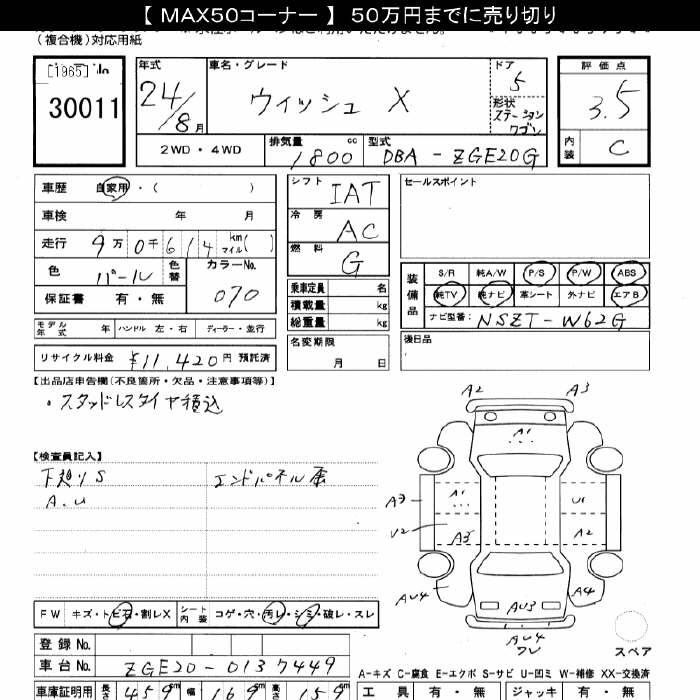 【 MAX50コーナー 】 50万円までに売り切り
（複合機）対応用紙
[1965]
30011
年式
24/8月
車名・グレード
ウィッシュ X
ドア
5
形状
ステーション
ワゴン
評価点
3.5
内装
C
2WD・4WD
排気量
1800 cc
型式
DBA - ZGE20G
車歴 自家用・( )
車検 年 月
走行 9万 0千 6 1 4 km マイル ( )
色 パール 色替
カラーNo.
070
保証書 有・無
モデル年式 年 ハンドル 左・右 ディーラー・並行
リサイクル料金 ¥11,420円 預託済
シフト IAT
冷房 AC
燃料 G
乗車定員 名
積載量 kg
総重量 kg
名変期限
月 日
セールスポイント
装備品
S/R 純A/W P/S P/W ABS
純TV 純ナビ 革シート 外ナビ エアB
ナビ型番: NSZT-W62G
後日品
【出品店申告欄(不良箇所・欠品・注意事項等)】
・スタッドレスタイヤ積込
【検査員記入】
下廻りS
エンドパネル歪
A.U
A2 A3
A1
A3 A1 U1
U2 A3 A2
AU4 AU3 A4
AU4
スペア
FW キズ・トビ石・割レX シート内装 コゲ・穴・汚レ・シミ・破レ・スレ
登録No.
車台No. ZGE20-0137449
A-キズ C-腐食 E-エクボ S-サビ U-凹ミ W-補修 XX-交換済
車庫証明用 長さ 459cm 幅 169cm 高さ 159cm
工具 有・無 ジャッキ 有・無